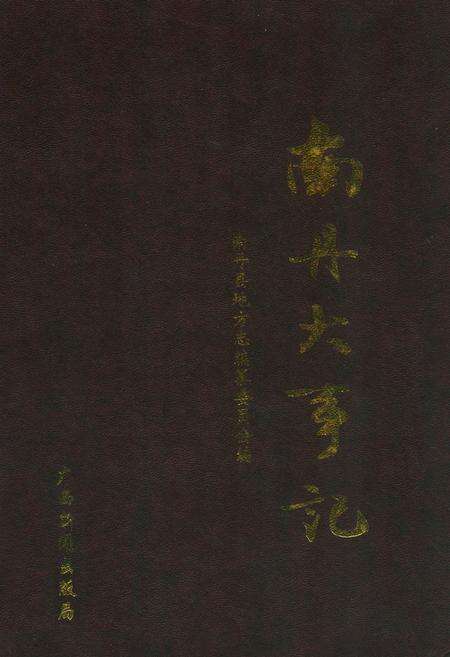 南丹大事记
南丹县地方志编纂委员会编
广西新闻出版局